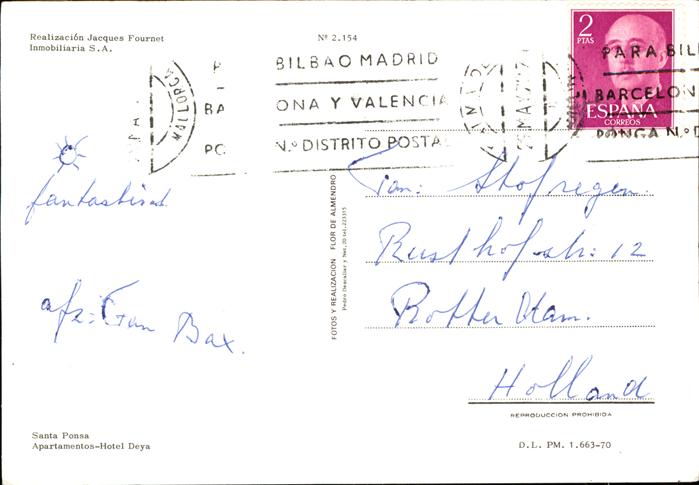 Realización Jacques Fournet
Inmobiliaria S.A.
Nº 2.154
2
PTAS
ESPAÑA
CORREOS
BILBAO MADRID
BA ONA Y VALENCIA
PO N.º DISTRITO POSTA
PARA BIL
BARCELON
PONGA N.º D
MALLORCA
fantastisch
afz: Bax.
Fam: Stofregen.
Rusthofstr: 12
Rotterdam.
Holland
FOTOS Y REALIZACION FLOR DE ALMENDRO
REPRODUCCION PROHIBIDA
Santa Ponsa
Apartamentos-Hotel Deya
D.L. PM. 1.663-70